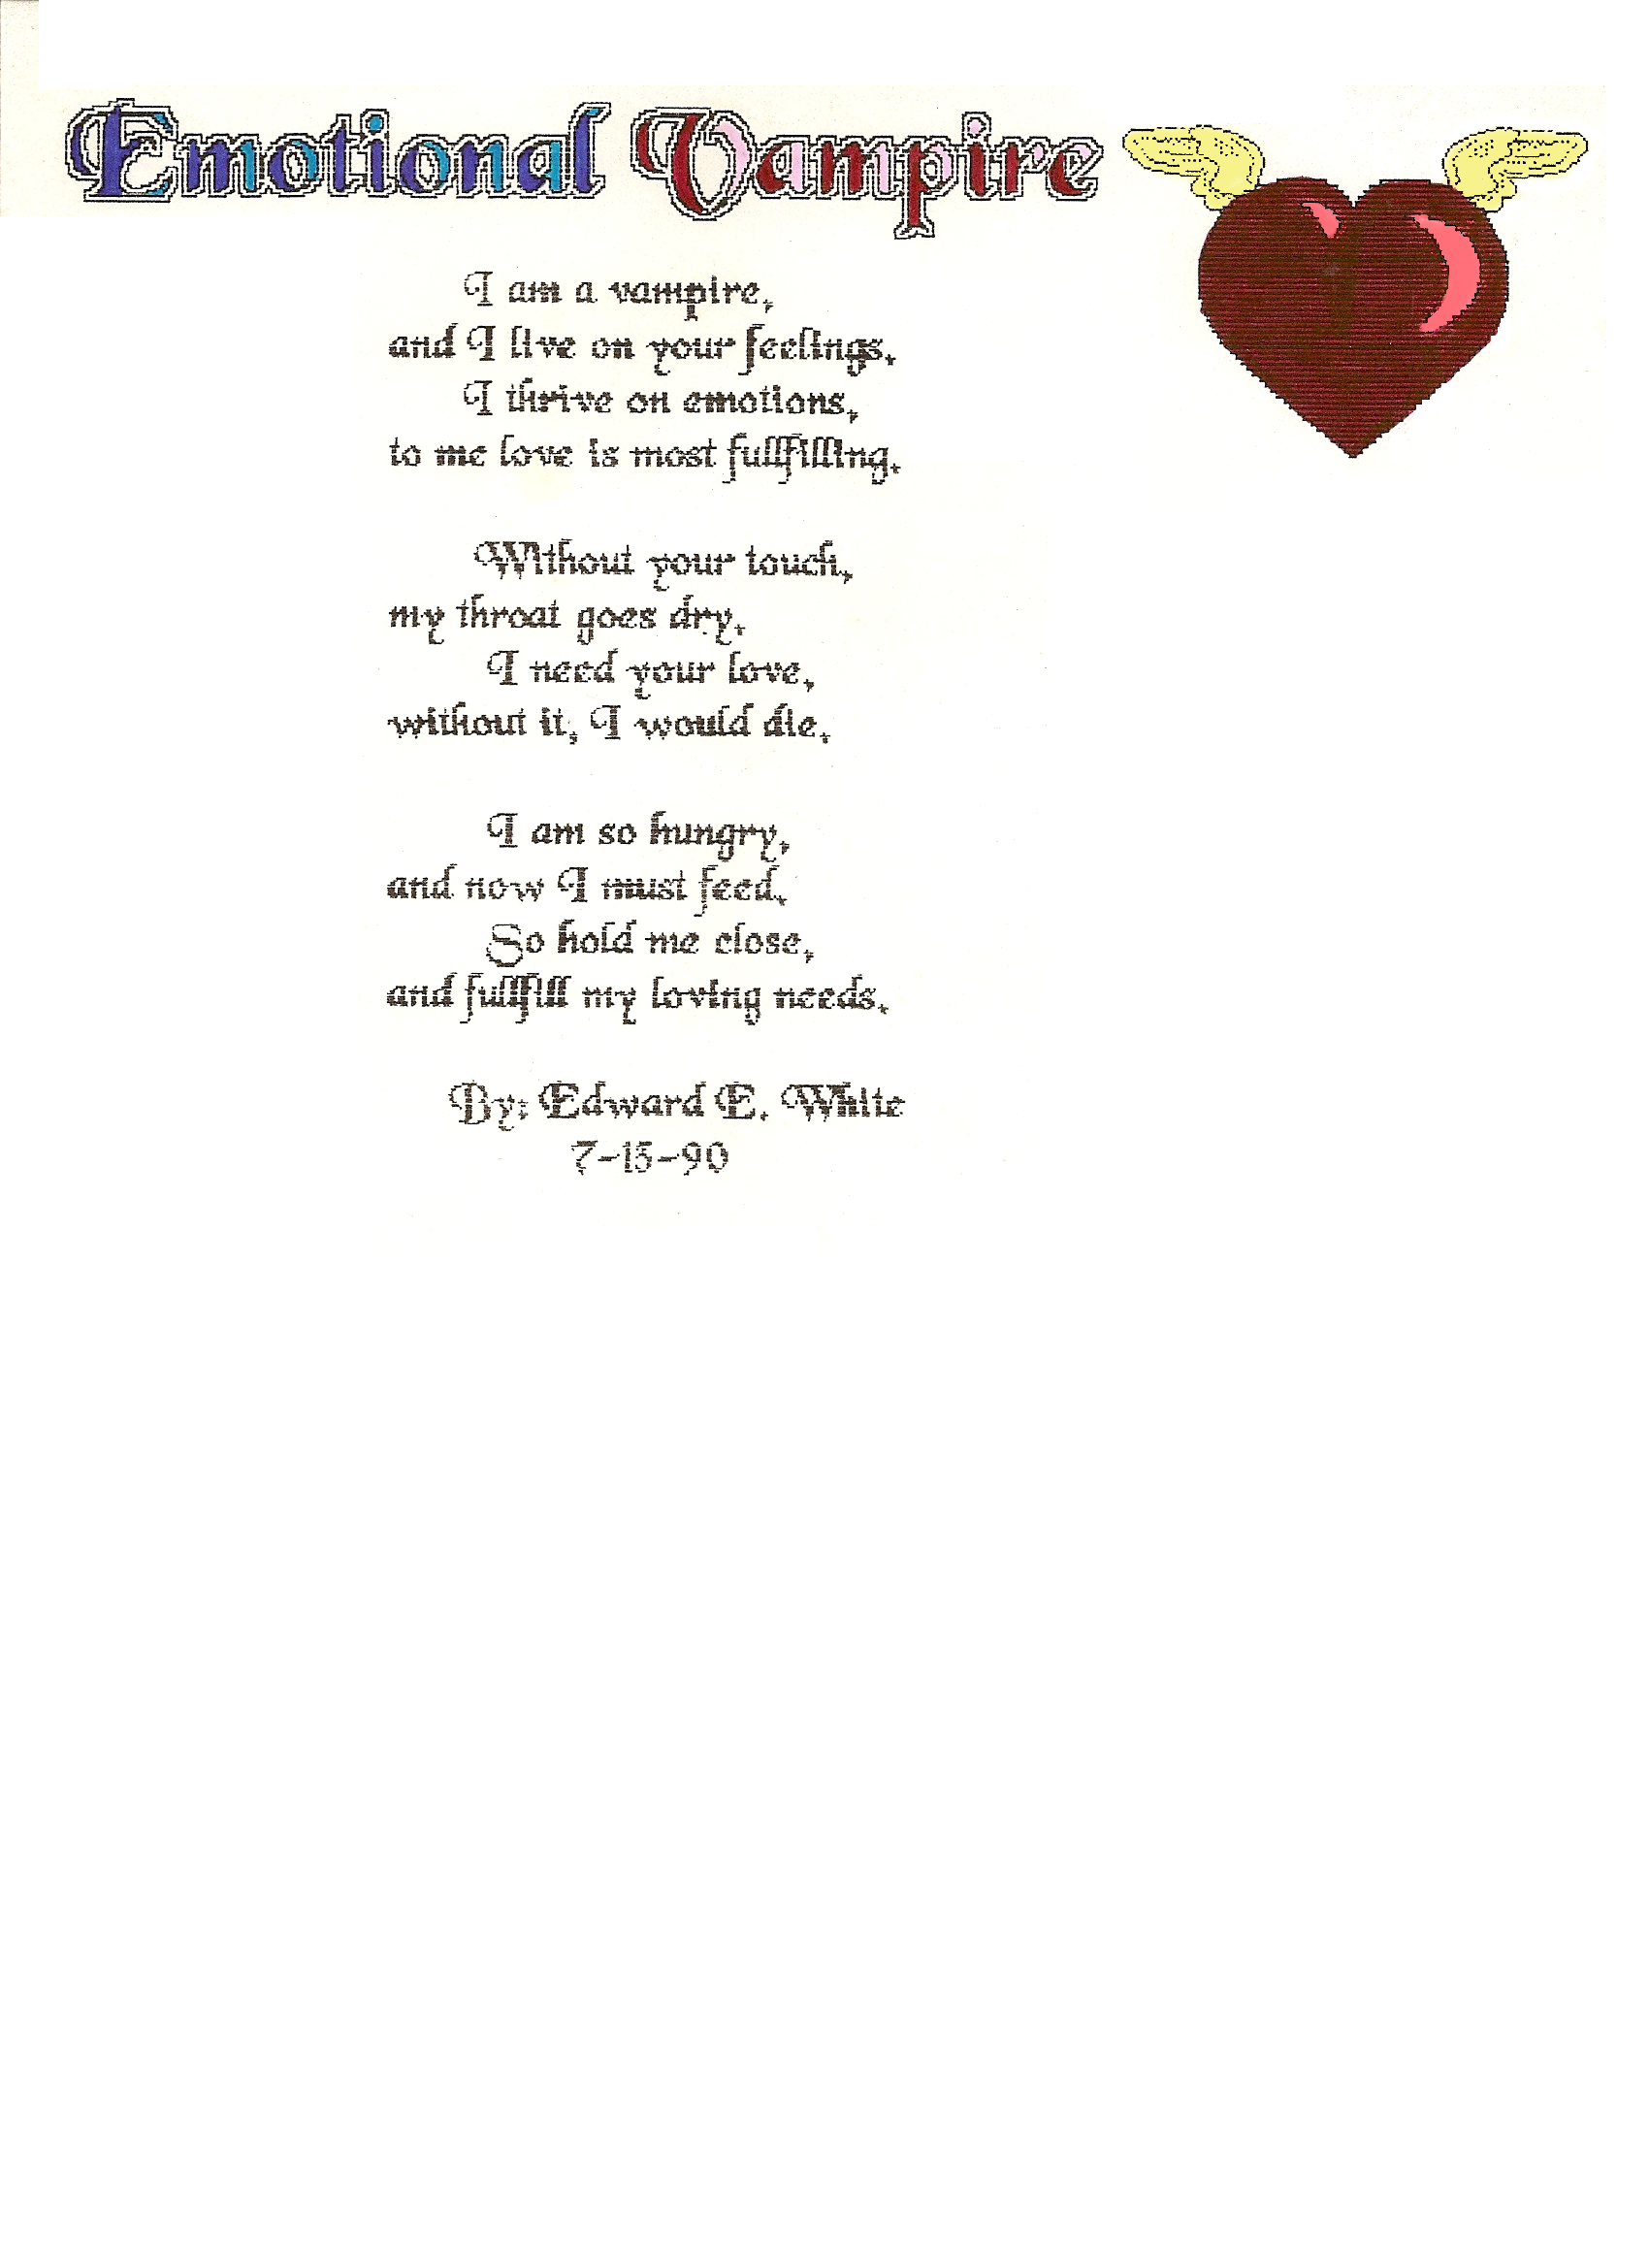 Emotional Vampire
I am a vampire,
and I live on your feelings.
I thrive on emotions,
to me love is most fullfilling.
Without your touch,
my throat goes dry.
I need your love,
without it, I would die.
I am so hungry,
and now I must feed.
So hold me close,
and fullfill my loving needs.
By: Edward E. White
7-15-90